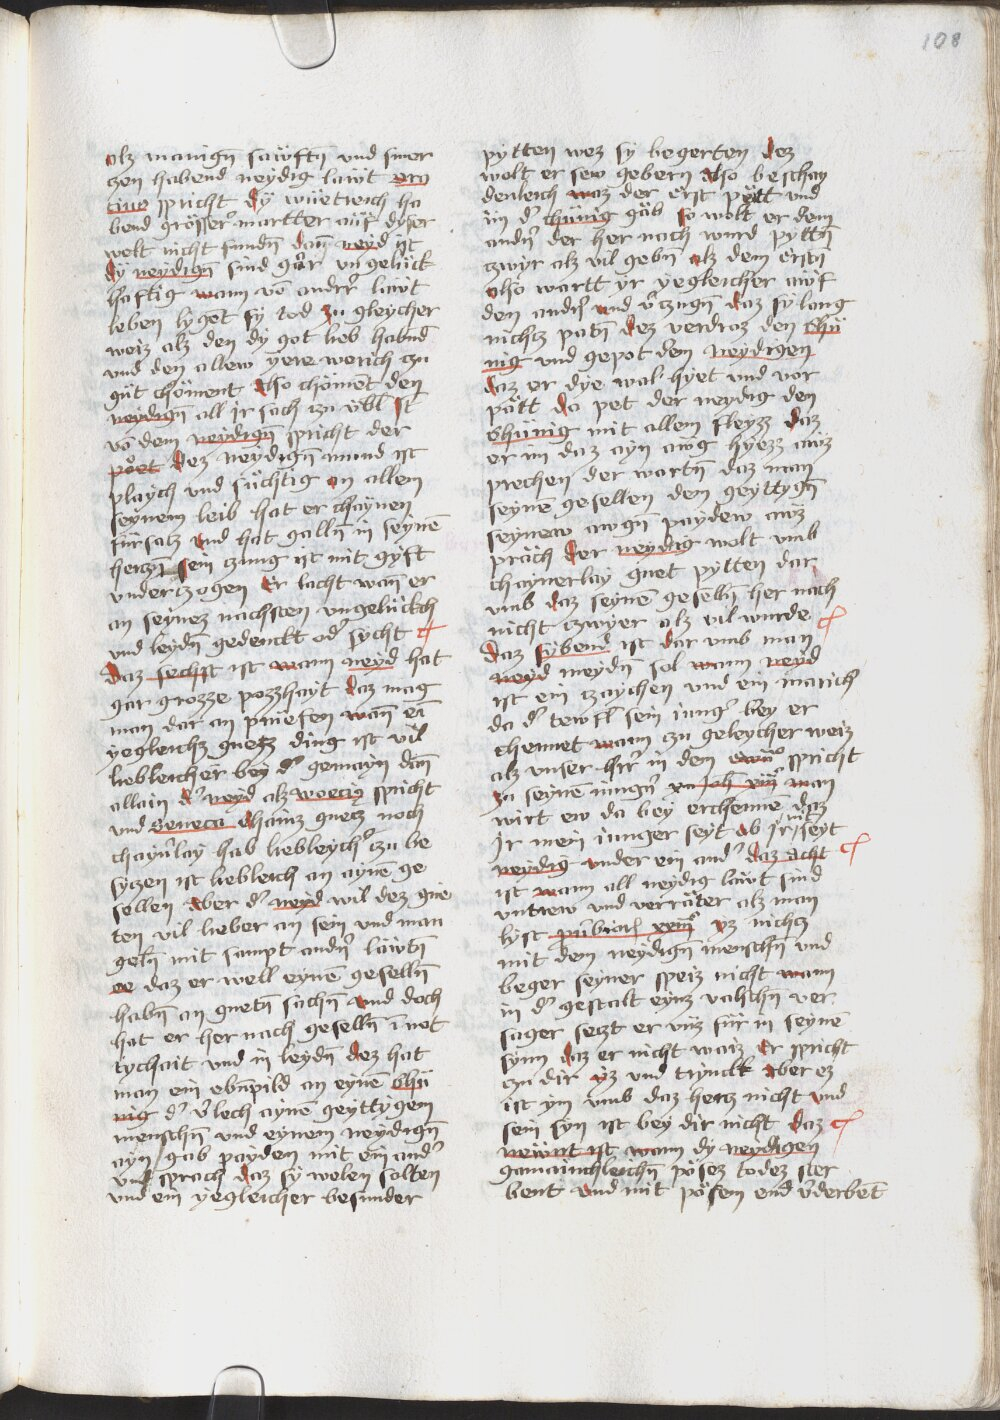 108
alz manign̄ sawftn̄ vnd smer
czen habend neydig läwt ora
cius spricht Dy wüetreich ha
bend grösser martter auf dyser
welt nicht fundn̄ dan̄ neyd ist
dy neydign̄ sind gar vn gelück
hafftig wann vo͞ andrer läwt
leben lyget sy tod zu gleycher
weiz alz den dy got lieb habnd
vnd den allew yere werich czu
guͤt chöment also chömet den
neydign̄ all Jr sach czu vbl ist
vo͞ dem neydign̄ spricht der
poͤet dez neydign̄ mund ist
playch vnd süchtig an allem
seynem leib hat er chaynen
fürsatz vnd hat galln̄ in seyne͞
herczn̄ sein czung ist mit gyft
vnderczogen Er lacht wan̄ er
an seynez nachsten vngelückch
vnd leydn̄ gedenckt od' sycht
Daz sechst ist wann neyd hat
gar grozze pozzhayt daz mag
man dar an priefen wan̄ ei͞
yegleichz guetz ding ist vil
liebleicher bey d' gemayn dan̄
allain d' neyd alz woeciꝯ spricht
vnd Seneca chainz guetz noch
chayn'lay hab liebleych' czu be
syczen ist liebleich an ayne͞ ge
sellen aber d' neyd wil dez gue
ten vil lieber an sein vnd man
geln̄ mit sampt andn' läwtn̄
ee daz er well eyne͞ geselln̄
habn̄ an guetn̄ sachn̄ vnd doch
hat er her nach geselln̄ i͞ not
tychait vnd in leydn̄ dez hat
man ein ebnpild an eyne͞ chü
nig d' v'lech ayne͞ geyttygem
menschn̄ vnd eynem neydign̄
ayn gab payden mit ein and'
vnd sprach daz sy welen solten
vnd ein yegleicher besunder
pytten wez sy begerten dez
wolt er sew gebern also beschay
denleich waz der erst pätt vnd
im d' chünig gäb so wolt er dem
andn' der her nach wurd pyttn̄
zwyr alz vil gebn̄ alz dem erstn̄
also wartt yr yegleicher auf
den andn' vnd v'czugn̄ daz sy lang
nichtz patn̄ dez verdroz den chü
nig vnd gepot dem neydigen
daz er dye wal hyet vnd vor
pätt do pet der neydig den
chünig mit allem fleyzz daz
er im daz ayn awg hyezz awz
prechen der wartn̄ daz man
seyne͞ gesellen dem geyttygn̄
seynew awgn̄ paydew awz
präch der neydig wolt vmb
chaynerlay guet pytten dar
vmb daz seyne͞ geselln̄ her nach
nicht zwyer alz vil wurde
Daz sybend ist dar vmb man
neyd meydn̄ sol wann neyd
ist ein czaychen vnd ein march
da d' tewfl sein iung' bey er
chennet wann czu geleycher weiz
alz vnser h'r in dem ewa͞ spricht
zu seyne͞ iungn' xiij Joh xiij man
wirt ew da bey erchenne͞ daz
Jr mein iunger seyt ob Jr nit seyt
neydig vnder ein and' daz acht
ist wann all neydig läwt sind
vntrew vnd verräter alz man
lyst p'ubior' xxiij yz nichtz
mit dem neydign̄ menschn̄ vnd
beger seyner speiz nicht wann
in d' gestalt eynz valschn̄ ver
sager seczt er vnz für in seyne͞
synn daz er nicht waiz Er spricht
czu dir yz vnd trinckk aber ez
ist ym vmb daz hercz nicht vnd
sein syn ist bey dir nicht daz
newnt ist wann dy neydigen
gemainchleichn̄ pösez todez ster
bent vnd mit pösem end v'derbe͞t